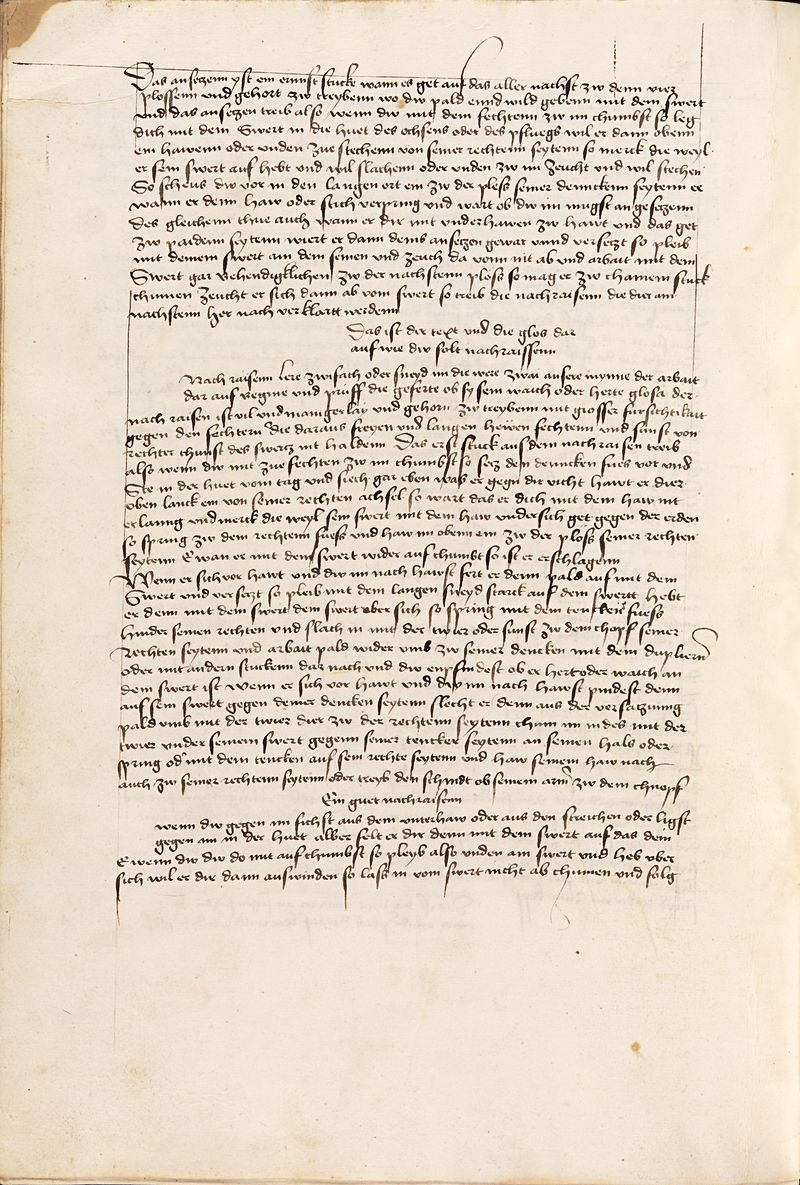 Das ansetzenn yst ein ernnst stuckt wann es get auf das aller nachst zw denn vier
plossenn und gehort zw treybenn wo dw pald ennd wild gebenn mit dem swert
und das ansetzen treib also wenn dw mit dem fechtenn zw im chumbst so leg
dich mit dem Swert in die huet des ochsens oder des pfluegs wil er dann obenn
ein hawenn oder unden zue stechenn von seiner rechtenn seytenn so merck die weyl
er sein swert auf hebt und wil slachenn oder unden zw im zeucht und wil stechen
So scheus dw vor in den langen ort ein zw der pless seiner dennckenn seytenn ee
wann er denn haw oder stich verpring und wart ob dw im mugst an gesetzenn
des gleichenn thue auch wann er dir mit underhawen zw hawt und das get
zw paidenn seytenn wiert er dann deins ansetzen gewar unnd versetzt so pleib
mit deinem swert am dem seinen und zeuch da vonn nit ab und arbait mit dem
Swert gar behendigklichen zw der nachstenn ploss so mag er zw chainem stuck
chumen zeucht er sich dann ab vom swert so treib die nachraisenn die dir am
nachstenn her nach verklartt werdenn
Das ist der text und die glos dar
auf wie dw solt nachraissenn
Nach raisenn lere zwifach oder sneyd im die were zwai ansere mynne der arbait
dar auf begine und prüff die geferte ob sy sein waich oder herte glosa der
nach raisen ist vil und maniger lay und gehorn zw treybenn mit grosser fursichtikait
gegen den fechtern die daraus freyen und langen hewen fechtenn und sunst von
rechter chunst des swertz nit haldenn Das erst stuck aus dem nach raisen treib
also wenn dw mit zuefechten zw im chumbst so setz den dennckenn fues vor und
Ste in der huet vom tag und siech gar eben was er gegn dir vicht hawt er dier
oben lanck ein von seiner rechten achsel so wart das er dich mit dem haw nit
erlanng und merck die weyl sein swert mit dem haw undersich get gegen der erden
so spring zw dem rechtenn fuess und haw im obenn ein zw der ploss seiner rechten
seytenn Ee wan er mit dem swert wider auf chumbt so ist er erschlagenn
Wenn er sich vor hawt und dw im nach hawst fert er denn pald auf mit dem
Swert und versetzt so pleib mit dem langen sneyd starck auf dem swertt hebt
er denn mit dem swert dem swert uber sich so spring mit dem tenckenn fuess
hinder seinen rechten und slach in mit der twier oder sunst zw dem chopf seiner
Rechten seytenn und arbait pald wider umb zw seiner dencken mit dem duplieren
oder mit andern stuckenn dar nach und dw enpfindest ob er hert oder waich an
dem swert ist Wenn er sich vor hawt und dw im nach hawst pindest denn
auf sein swert gegen deiner dencken seytenn slecht er denn aus der versatzunng
pald umb mit der twier dier zw der rechtenn seytenn chum im indes mit der
twier under seinem swert gegenn seiner tencker seytenn an seinen hals oder
spring od mit dem tencken auf sein rechte seytenn und haw seinem haw nach
auch zw seiner rechtenn seytenn oder treyb den schnidt ob seinem arm zw dem chnopf
Ein guet nachraisenn
wenn dw gegen im fichst aus dem unterhaw oder aus den streichen oder ligst
gegen im in der huet alber felt er dir denn mit dem swert auf das dein
Ee wenn dw dw do mit auf chumbst so pleyb also unden am swert und heb uber
sich wil er dir dann auswinden so lass in vom swert nicht ab chumen und folg